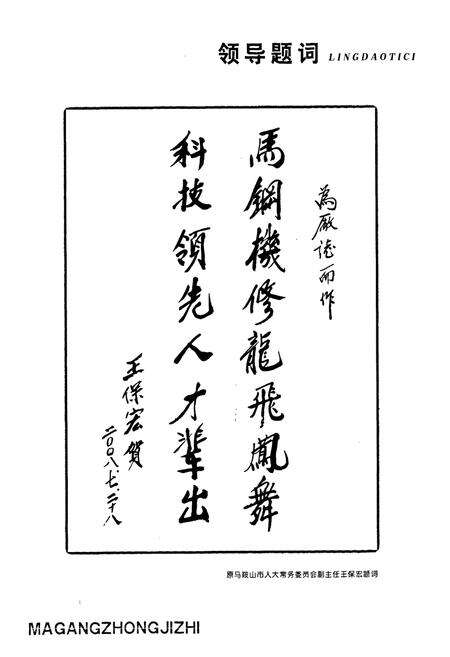 领导题词 LINGDAOTICI
为廠誌而作
馬鋼機修龍飛鳳舞
科技領先人才輩出
王保宏賀
二〇〇八.七.二十八
原马鞍山市人大常务委员会副主任王保宏题词
MAGANGZHONGJIZHI